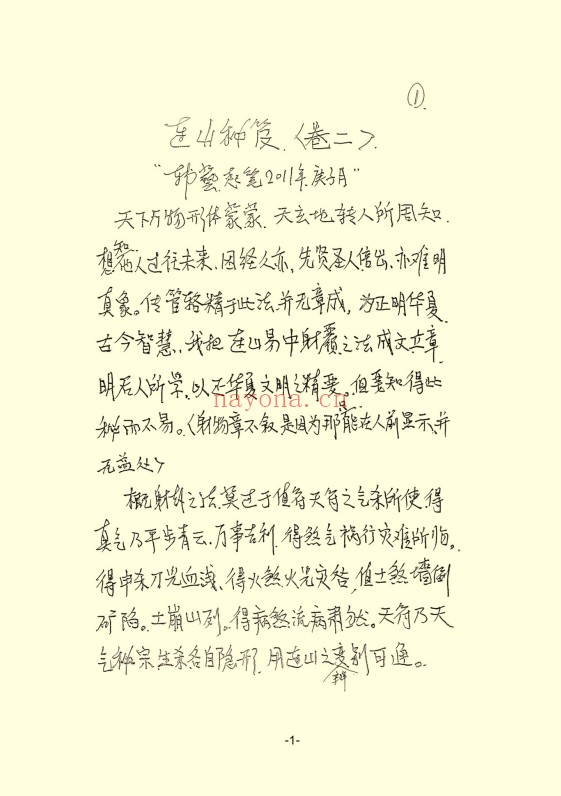 ①.
连山秘笈.〈卷二〉.
"韩艺起笔2011年庚子月"
天下万物形体蒙蒙.天玄地转人所周知.
想知他人过往未来.因经久亦,先贤圣人倍出.亦难明
真象。传管辂精于此法.并无章成,为正明华夏
古今智慧,我把连山易中射覆之法成文立章
明后人所学.以不华夏文明之精要.但要知得此
秘而不易。〈射物章不叙是因为那能在人前显示,并
无益处〉
概射卦之法.莫过于值符天符之气杀所使.得
真气乃平步青云.万事吉利.得煞气祸行灾难所临。
得申杀刀光血浅、得火煞火光灾咎,值土煞墙倒
矿陷。土崩山列。得病煞流病肃 。天符乃天
气秘宗.生杀各自隐形.用连山之变别可通。
辨
-1-
nayona.cn